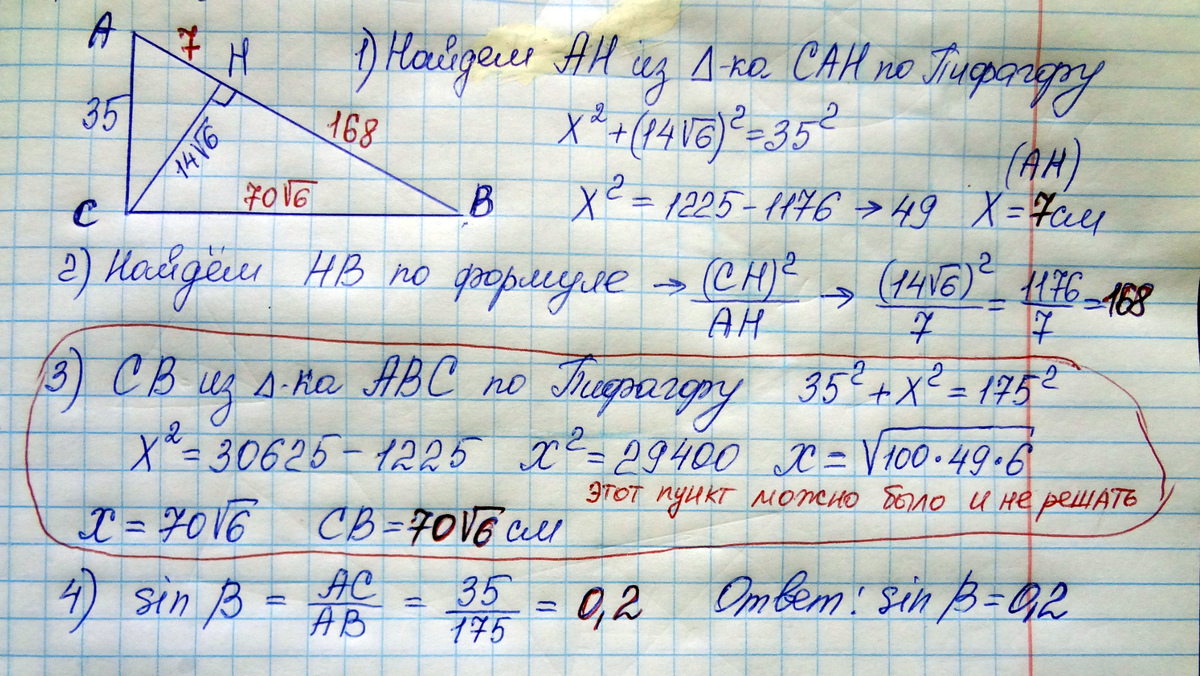 A 7 H 1) Найдем AH из Δ-ка CAH по Пифагору
35 14√6 168 X² + (14√6)² = 35²
70√6 (AH)
C B X² = 1225 - 1176 → 49 X = 7см
2) Найдём HB по формуле → (CH)²/AH → (14√6)²/7 = 1176/7 = 168
3) CB из Δ-ка ABC по Пифагору 35² + X² = 175²
X² = 30625 - 1225 X² = 29400 X = √100·49·6
этот пункт можно было и не решать
X = 70√6 CB = 70√6 см
4) sin β = AC/AB = 35/175 = 0,2 Ответ: sin β = 0,2